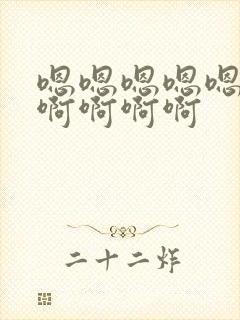 嗯嗯嗯嗯嗯
啊啊啊啊
二十二炸